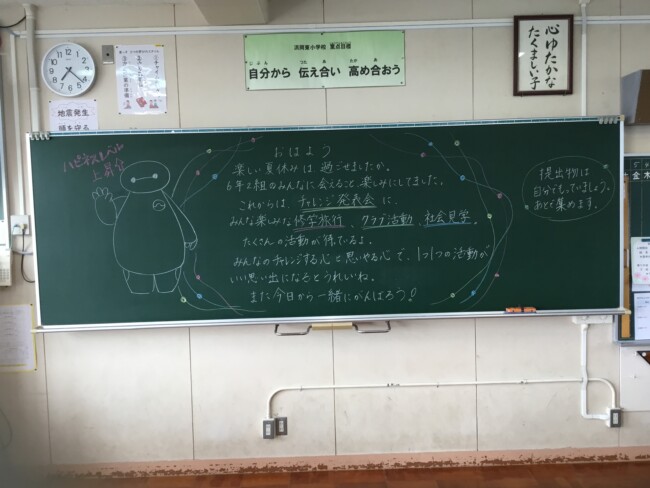 重点目標
自分から 伝え合い 高め合おう
心ゆたかな
たくましい子
地震発生
頭を守る
ハピネスレベル
上昇中
おはよう
楽しい夏休みは過ごせましたか。
6年2組のみんなに会えること、楽しみにしてました。
これからは、チャレンジ発表会に、
みんな楽しみな修学旅行、クラブ活動、社会見学。
たくさんの活動が待ているよ。
みんなのチャレンジする心と思いやる心で、1つ1つの活動が
いい思い出になるとうれしいね。
また今日から一緒にがんばろう!
提出物は
自分でもっていましょう。
あとで集めます。
金 木